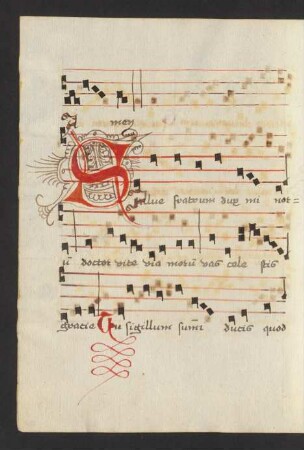 A men
Salue fratrum dux mi nor=
ū doctor vite via morū vas cele stis
gracie Tu sigillum sūmi ducis quod